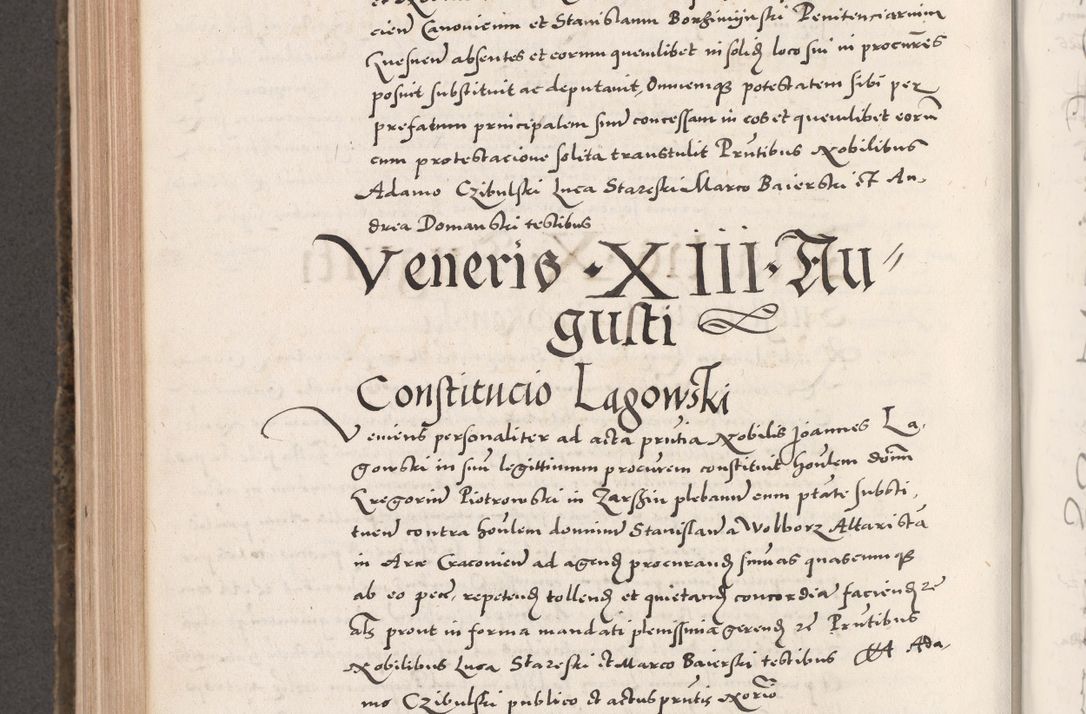 cien Canonicum et Stanislaum Borzimijnski Penitenciarium
Gnesnen absentes et eorum quemlibet in solid loco sui in procures
posuit substituit ac deputauit, Omnemq potestatem sibi per
prefatum principalem suum concessam in eos et quemlibet eorum
cum protestacione solita transtulit Prntibus Nobilibus
Adamo Czibulski Luca Stareski Marco Baierski et An,
drea Domanski testibus
Veneris · XIII · Au
gusti
Constitucio Lagowski
Veniens personaliter ad acta prntia Nobilis Joannes La,
gowski in suum legittimum procurem constituit honlem domnum
Gregorium Piotrowski in Zarszin plebanum cum ptate substi,
tuen contra honlem dominum Stanislaum a Wolborz Altarista
in Arce Cracovien ad agend procurand summas quascumq
ab eo pecc, repetend tollend et quietand concordia faciend etc
als prout in forma mandati plenissima gerend etc Prntibus
Nobilibus Luca Stareski et Marco Baierski testibus Ada
mo Czibulski publico et actus prntis Norio